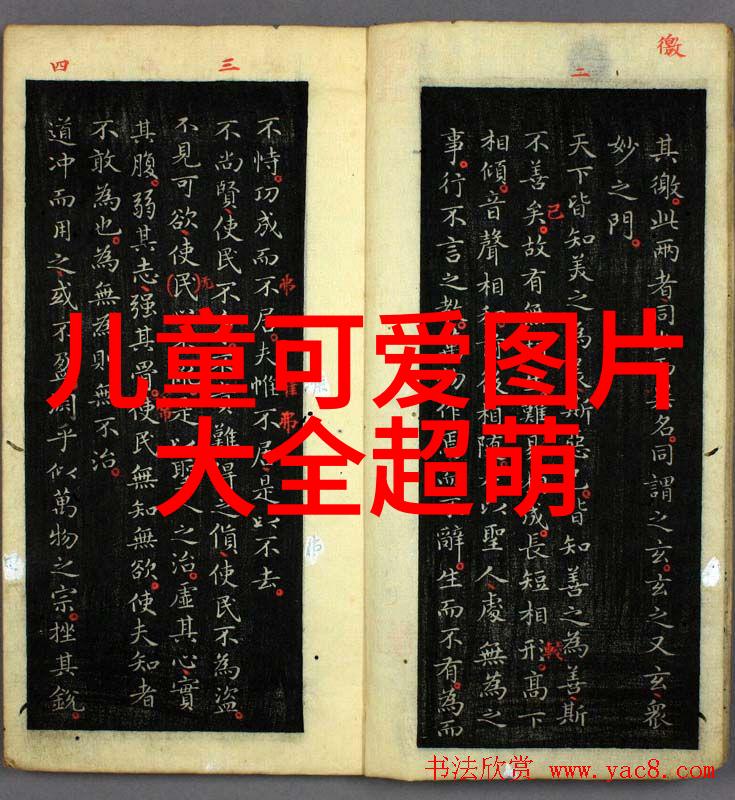 儿童可爱图片
大全超萌
徼
二
其徼此兩者同名同謂之玄玄之又玄眾
妙之門
天下皆知美之為斯惡已皆知善之為善斯
不善矣故有無難成長短相形高下
相傾音聲相後相隨以聖人處無為之
事行不言之教作而不辭生而不有為而
三
四
不恃功成而不居夫惟不居是以不去
不尚賢使民不難得之貨使民不為盜
不見可欲使民是以聖人之治虛其心實
其腹弱其志强其骨使民無知無欲使夫知者
不敢為也為無為則無不治
道冲而用之或不盈淵乎似萬物之宗挫其銳
书法欣赏 www.yac8.com